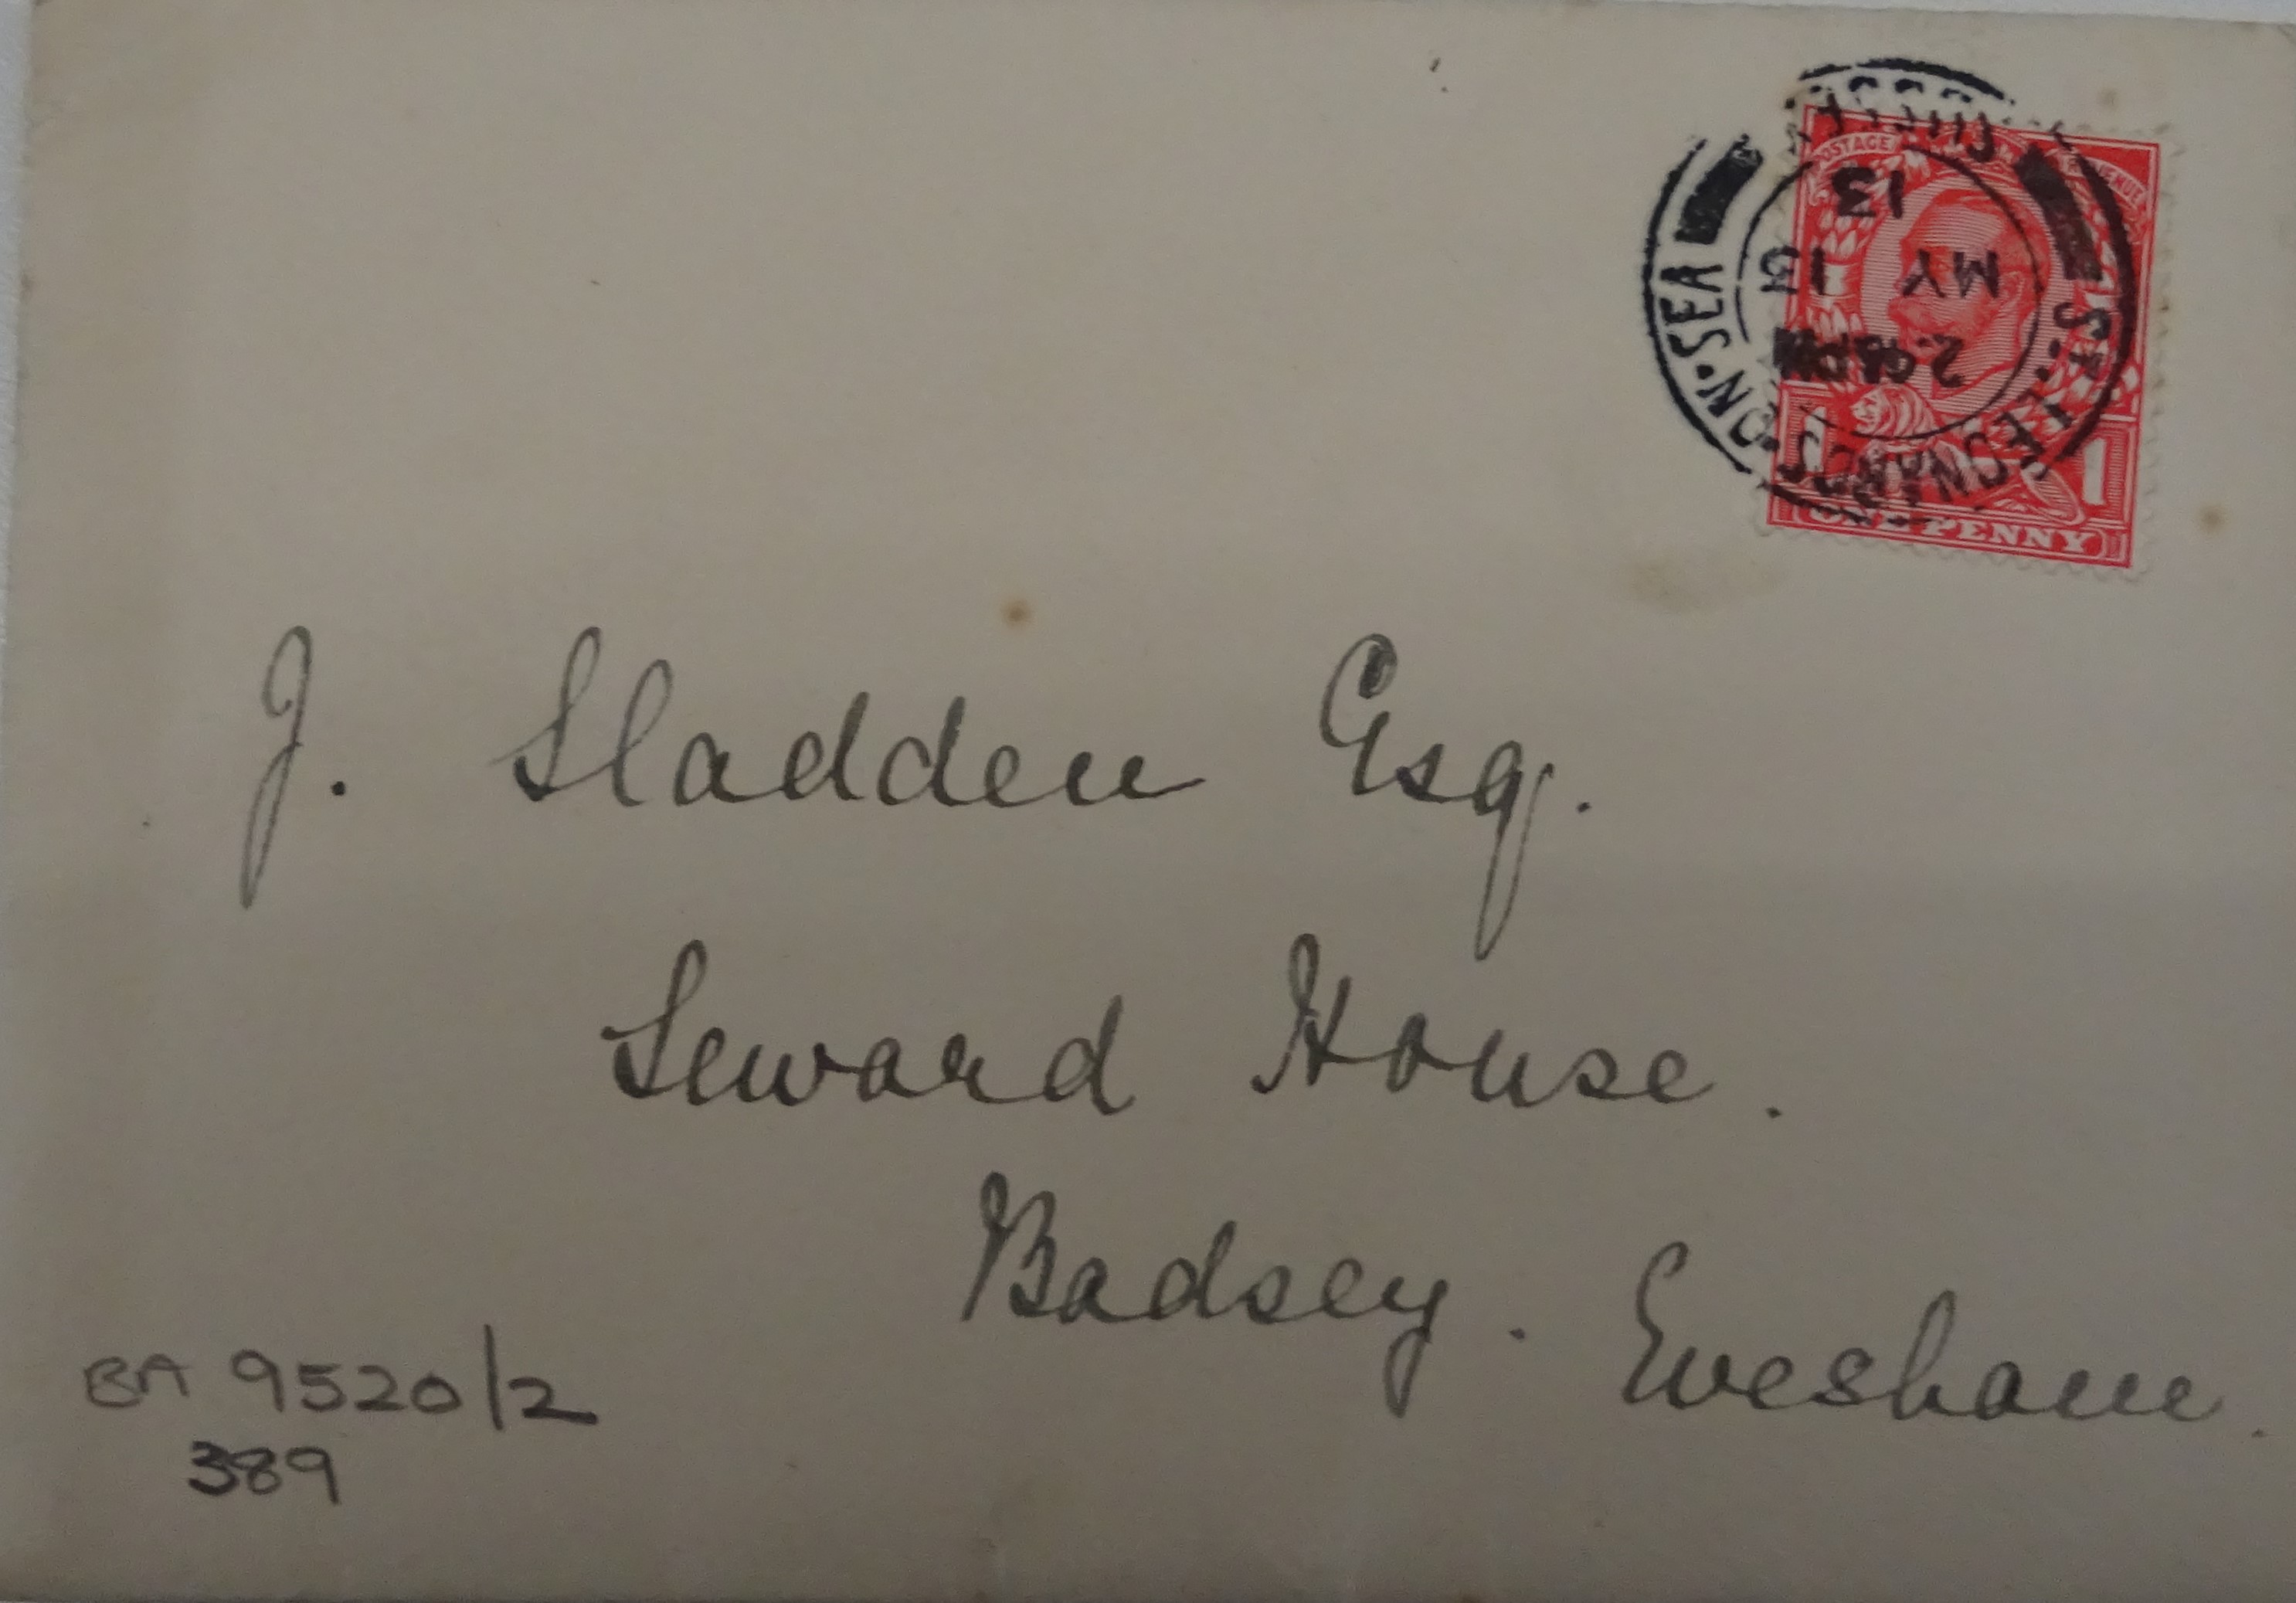 POSTAGE REVENUE
ST. LEONARDS·ON·SEA
2. PM
MY 13
13
1 1
ONE PENNY
J. Sladden Esq.
Seward House.
Badsey. Evesham.
BA 9520/2
389